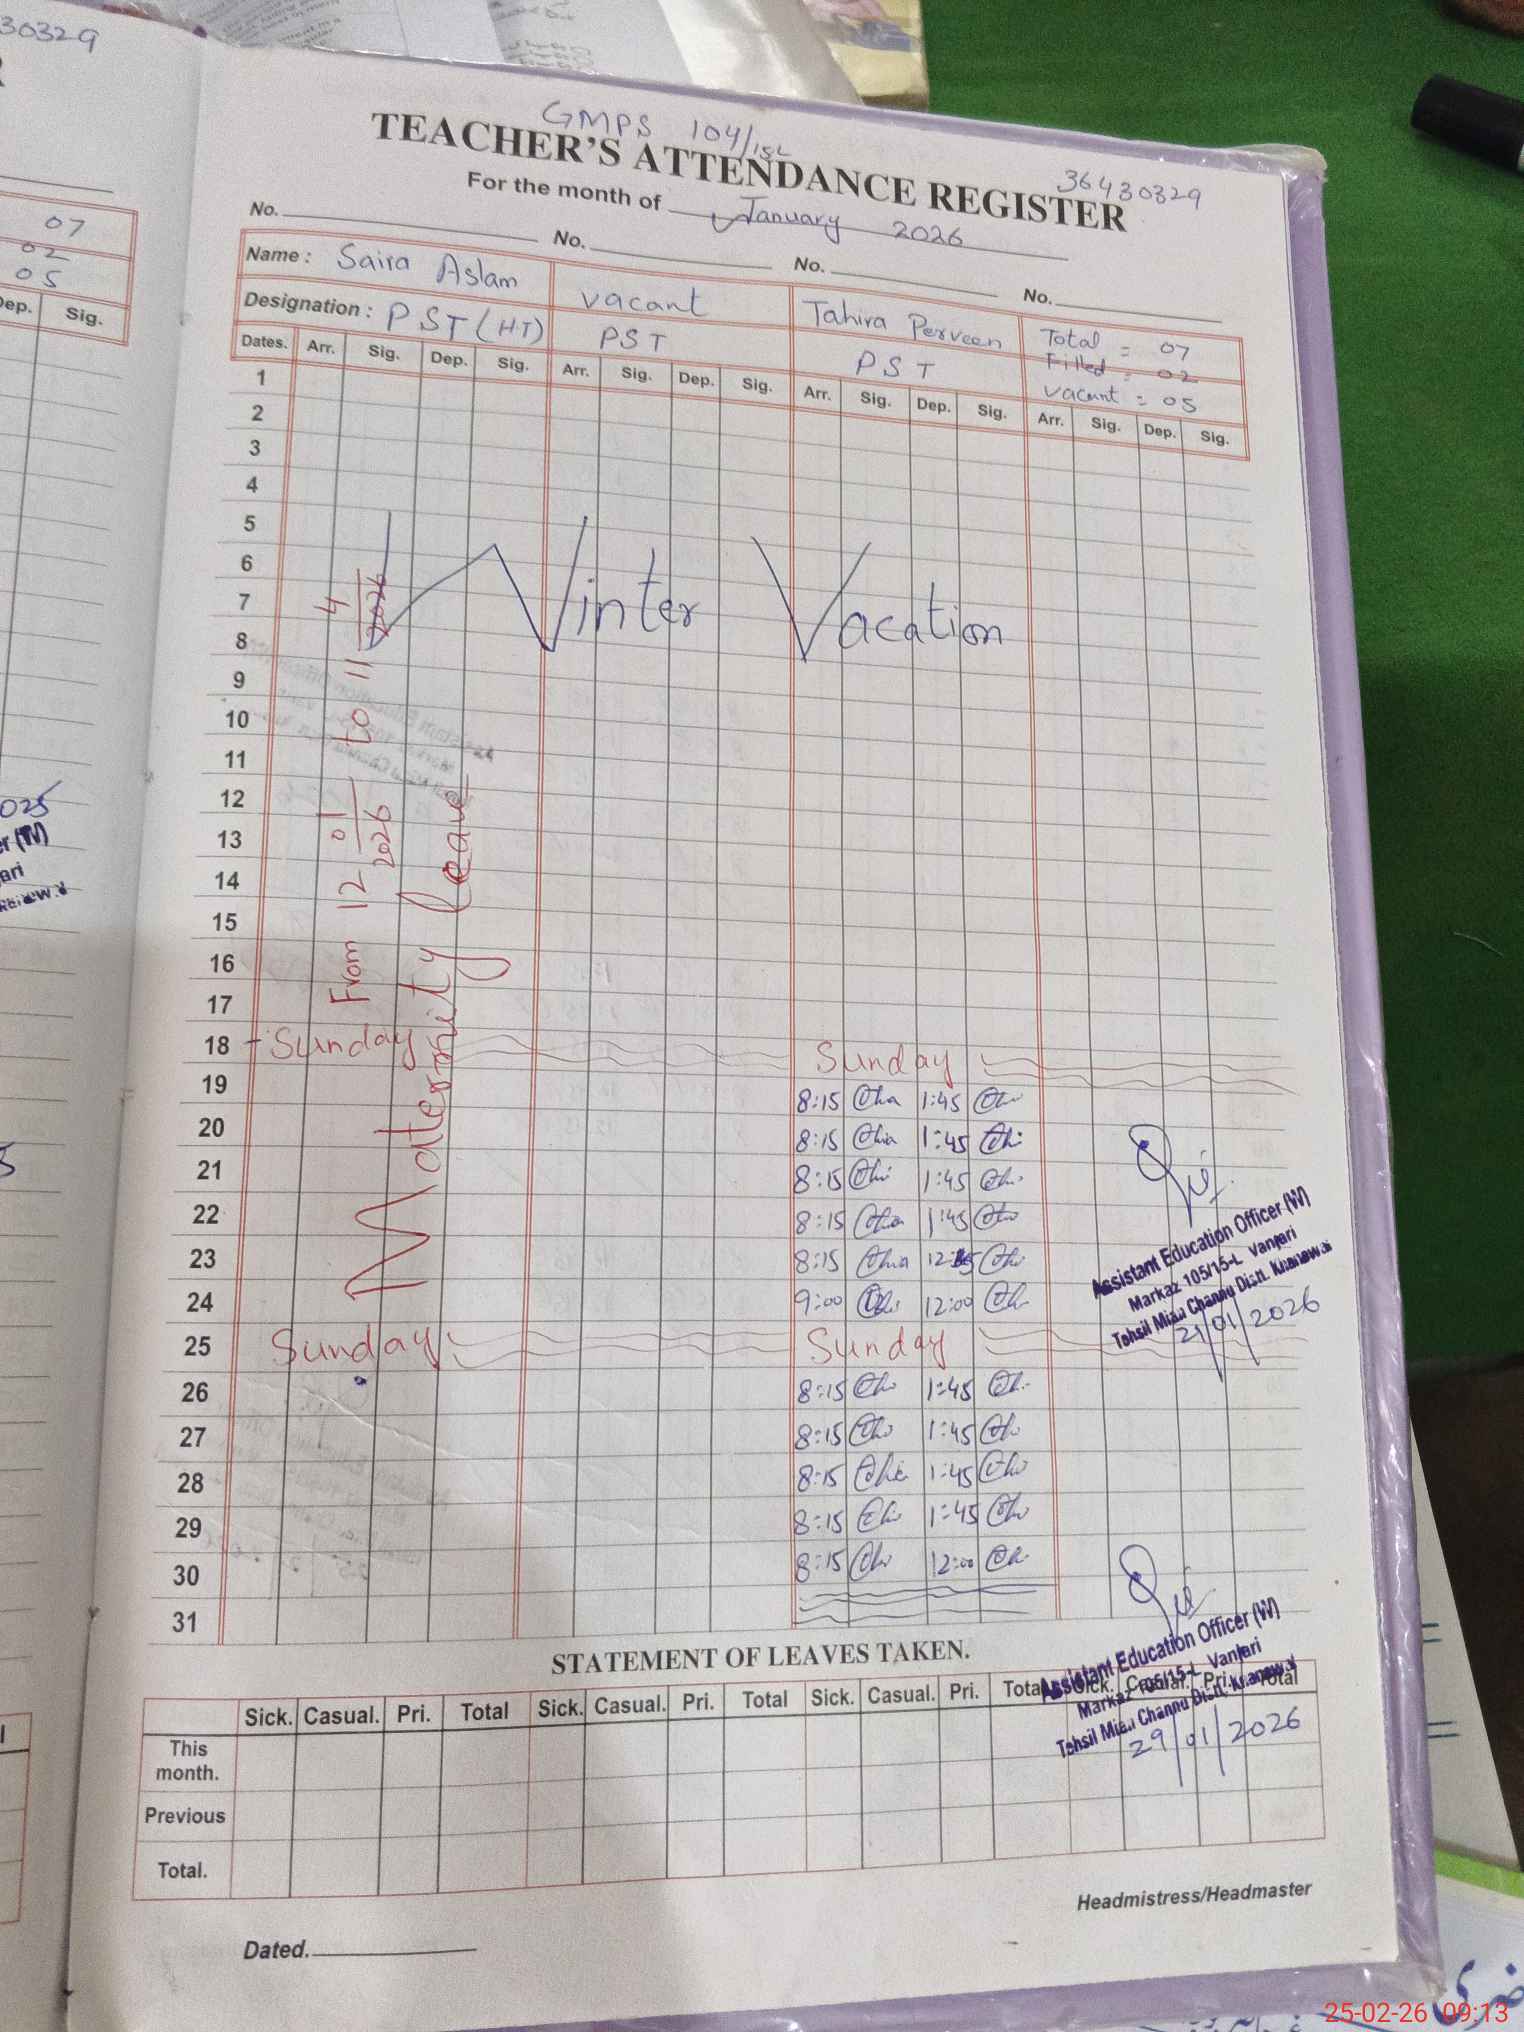 30329
GMPS 104/15L
TEACHER'S ATTENDANCE REGISTER
36430329
For the month of January 2026
No. No. No. No.
Name : Saira Aslam vacant Tahira Perveen Total = 07
Filled = 02
Designation : PST (HT) PST PST vacant = 05
Dates. Arr. Sig. Dep. Sig. Arr. Sig. Dep. Sig. Arr. Sig. Dep. Sig. Arr. Sig. Dep. Sig.
1
2
3
4
5
6
7
8
Winter Vacation
9
10
11
12
13
14
15
16
17
From 12 01 2026 to 11 4 2026
Maternity leave
18 Sunday Sunday
19 8:15 1:45
20 8:15 1:45
21 8:15 1:45
22 8:15 1:45
23 8:15
24 9:00 12:00
25 Sunday Sunday
26 8:15 1:45
27 8:15 1:45
28 8:15 1:45
29 8:15 1:45
30 8:15 12:00
31
Assistant Education Officer (W)
Markaz 105/15-L Vanjari
Tehsil Mian Channu Distt. Khanewal
21/01/2026
STATEMENT OF LEAVES TAKEN.
Assistant Education Officer (W)
Markaz 105/15-L Vanjari
Tehsil Mian Channu Distt. Khanewal
29/01/2026
Sick. Casual. Pri. Total Sick. Casual. Pri. Total Sick. Casual. Pri. Total Sick. Casual. Pri. Total
This month.
Previous
Total.
Headmistress/Headmaster
Dated.
07
02
05
Dep. Sig.
025
25-02-26 09:13